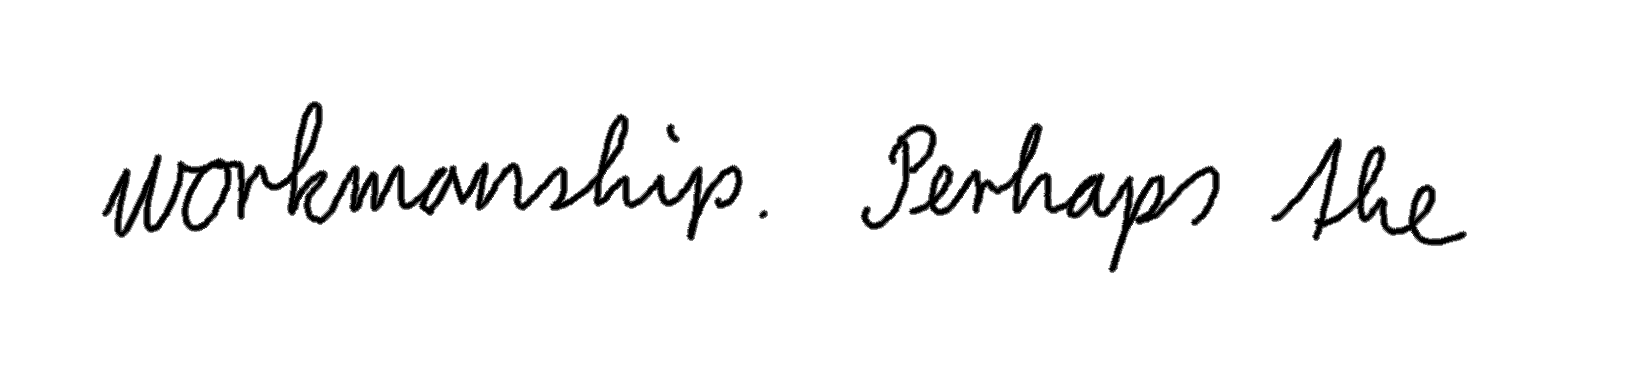 workmanship. Perhaps the